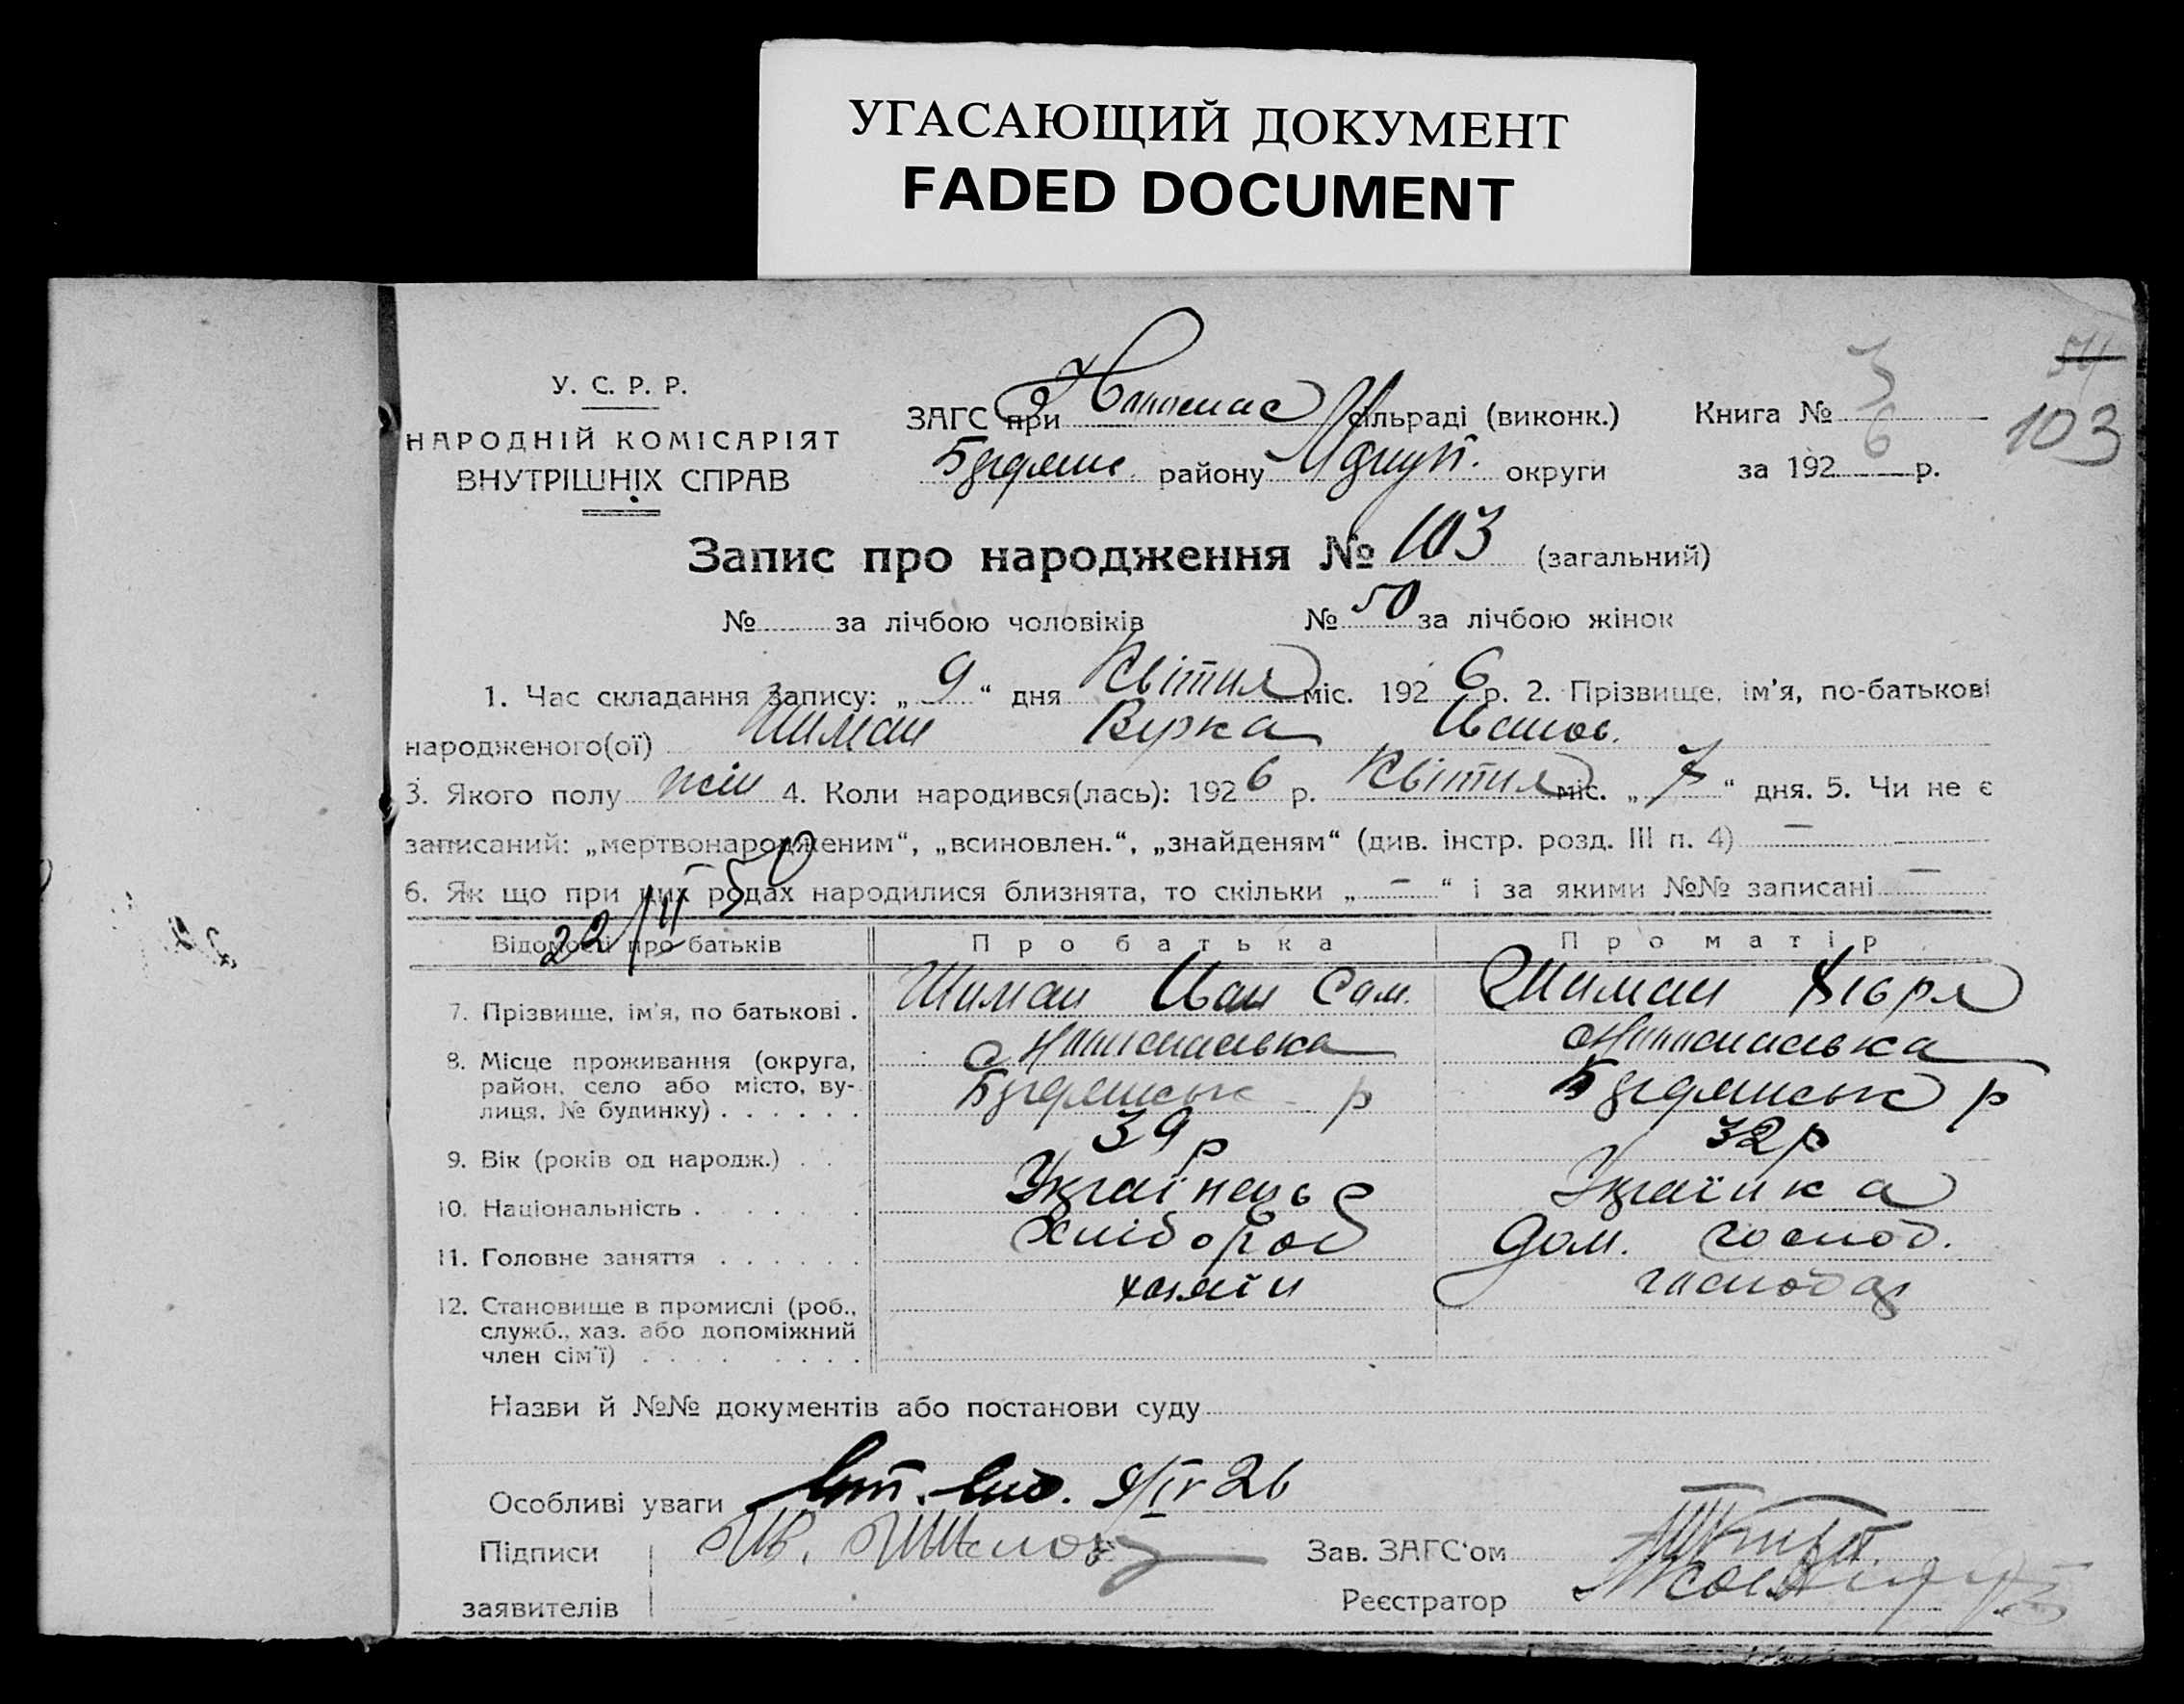 УГАСАЮЩИЙ ДОКУМЕНТ
FADED DOCUMENT
54
У. С. Р. Р.
НАРОДНІЙ КОМІСАРІЯТ
ВНУТРІШНІХ СПРАВ
ЗАГС при сільраді (виконк.) Книга № 3 103
району округи за 1926 р.
Запис про народження № 103 (загальний)
№ за лічбою чоловіків № 50 за лічбою жінок
1. Час складання запису: „9“ дня Квітня міс. 1926 р. 2. Прізвище, ім'я, по-батькові
народженого(ої) Шиман Вірка Іванов.
3. Якого полу жін 4. Коли народився(лась): 1926 р. Квітня міс. „7“ дня. 5. Чи не є
записаний: „мертвонародженим“, „всиновлен.“, „знайденям“ (див. інстр. розд. III п. 4) —
6. Як що при цих родах народилися близнята, то скільки „—“ і за якими №№ записані —
22/II 50
Відомості про батьків Про батька Про матір
7. Прізвище, ім'я, по батькові . Шиман Іван Сам. Шиман
8. Місце проживання (округа,
район, село або місто, ву-
лиця, № будинку) . . . . . . р р
9. Вік (років од народж.) . . 39 р 32 р
10. Національність . . . . . . Українець Українка
11. Головне заняття . . . . . . Хлібороб Дом. господ.
12. Становище в промислі (роб., хазяїн господар
служб., хаз. або допоміжний
член сім'ї) . . . . . . . .
Назви й №№ документів або постанови суду
Особливі уваги 9/IV 26
Підписи Ив. Зав. ЗАГС'ом
заявителів Реєстратор